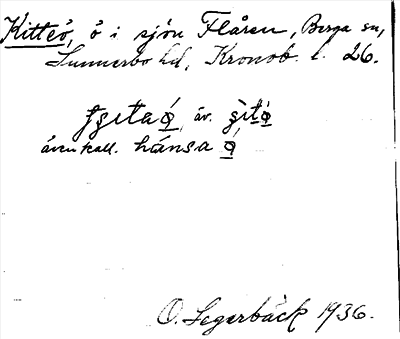 Kitteö, ö i sjön Flåren, Berga sn,
Sunnerbo hd, Kronob. l. 26.
även kall. hánsa ǫ́
O. Segerbäck 1936.